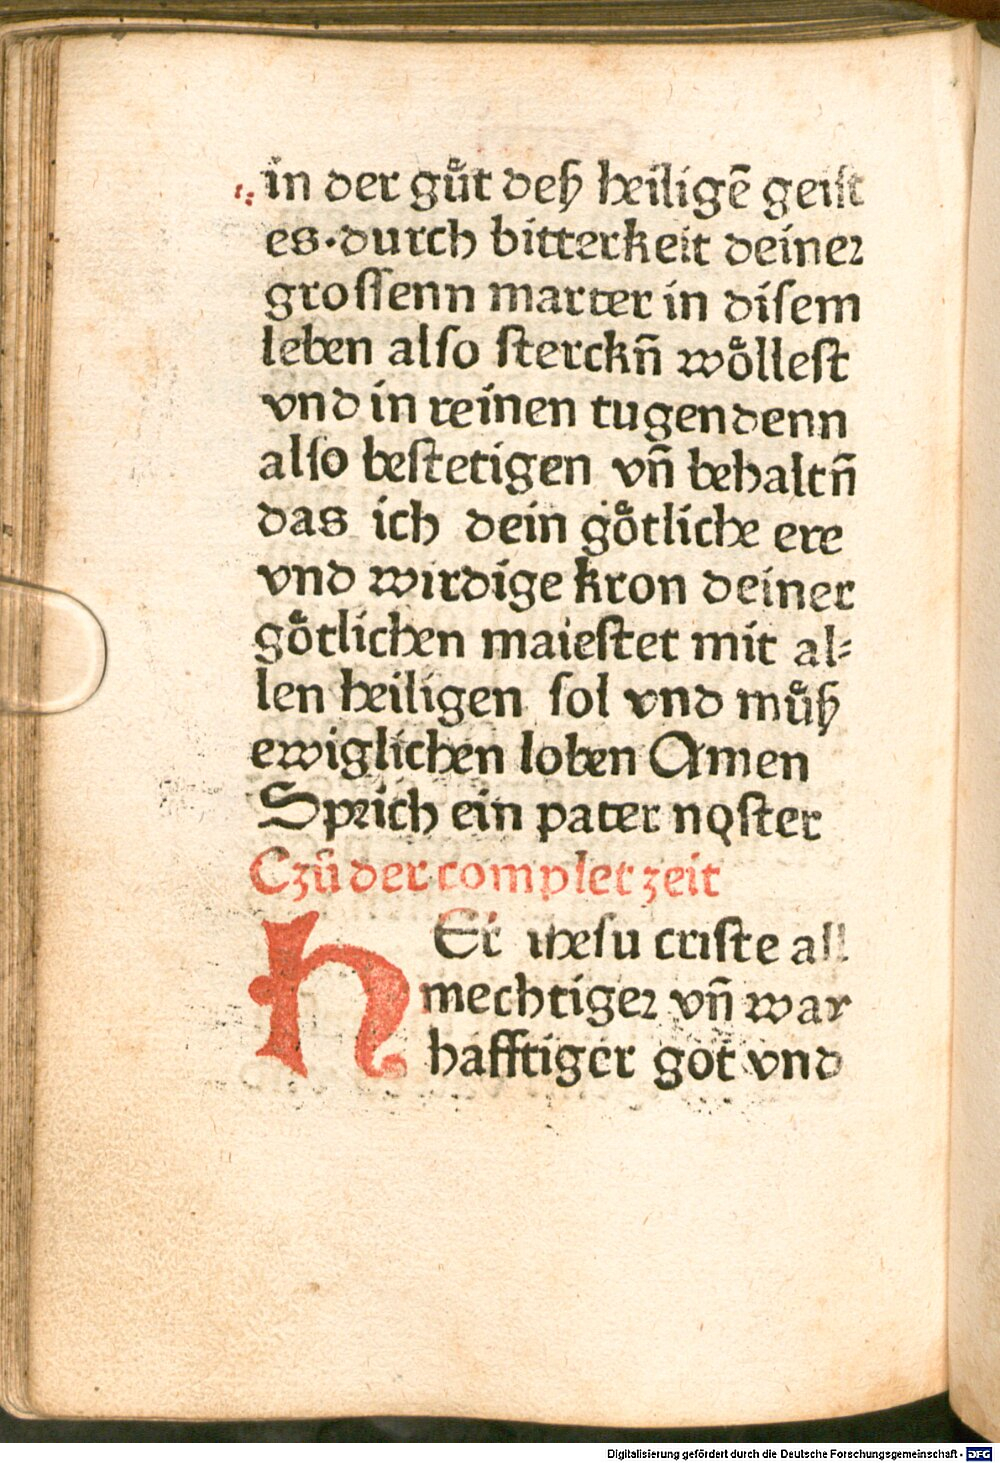 in der guͤt deß heiligẽ geiſt
es·durch bitterkeit deineꝛ
groſſenn marter in diſem
leben alſo ſterckñ woͤlleſt
vnd in reinen tugendenn
alſo beſtetigen vñ behaltñ
das ich dein goͤtliche ere
vnd wirdige kron deiner
goͤtlichen maieſtet mit al⸗
len heiligen ſol vnd muͤß
ewiglichen loben Amen
Spꝛich ein pater noſter
Czů der complet zeit
HEr iheſu criſte all
mechtigeꝛ vñ war
hafftiger got vnd
Digitalisierung gefördert durch die Deutsche Forschungsgemeinschaft - DFG